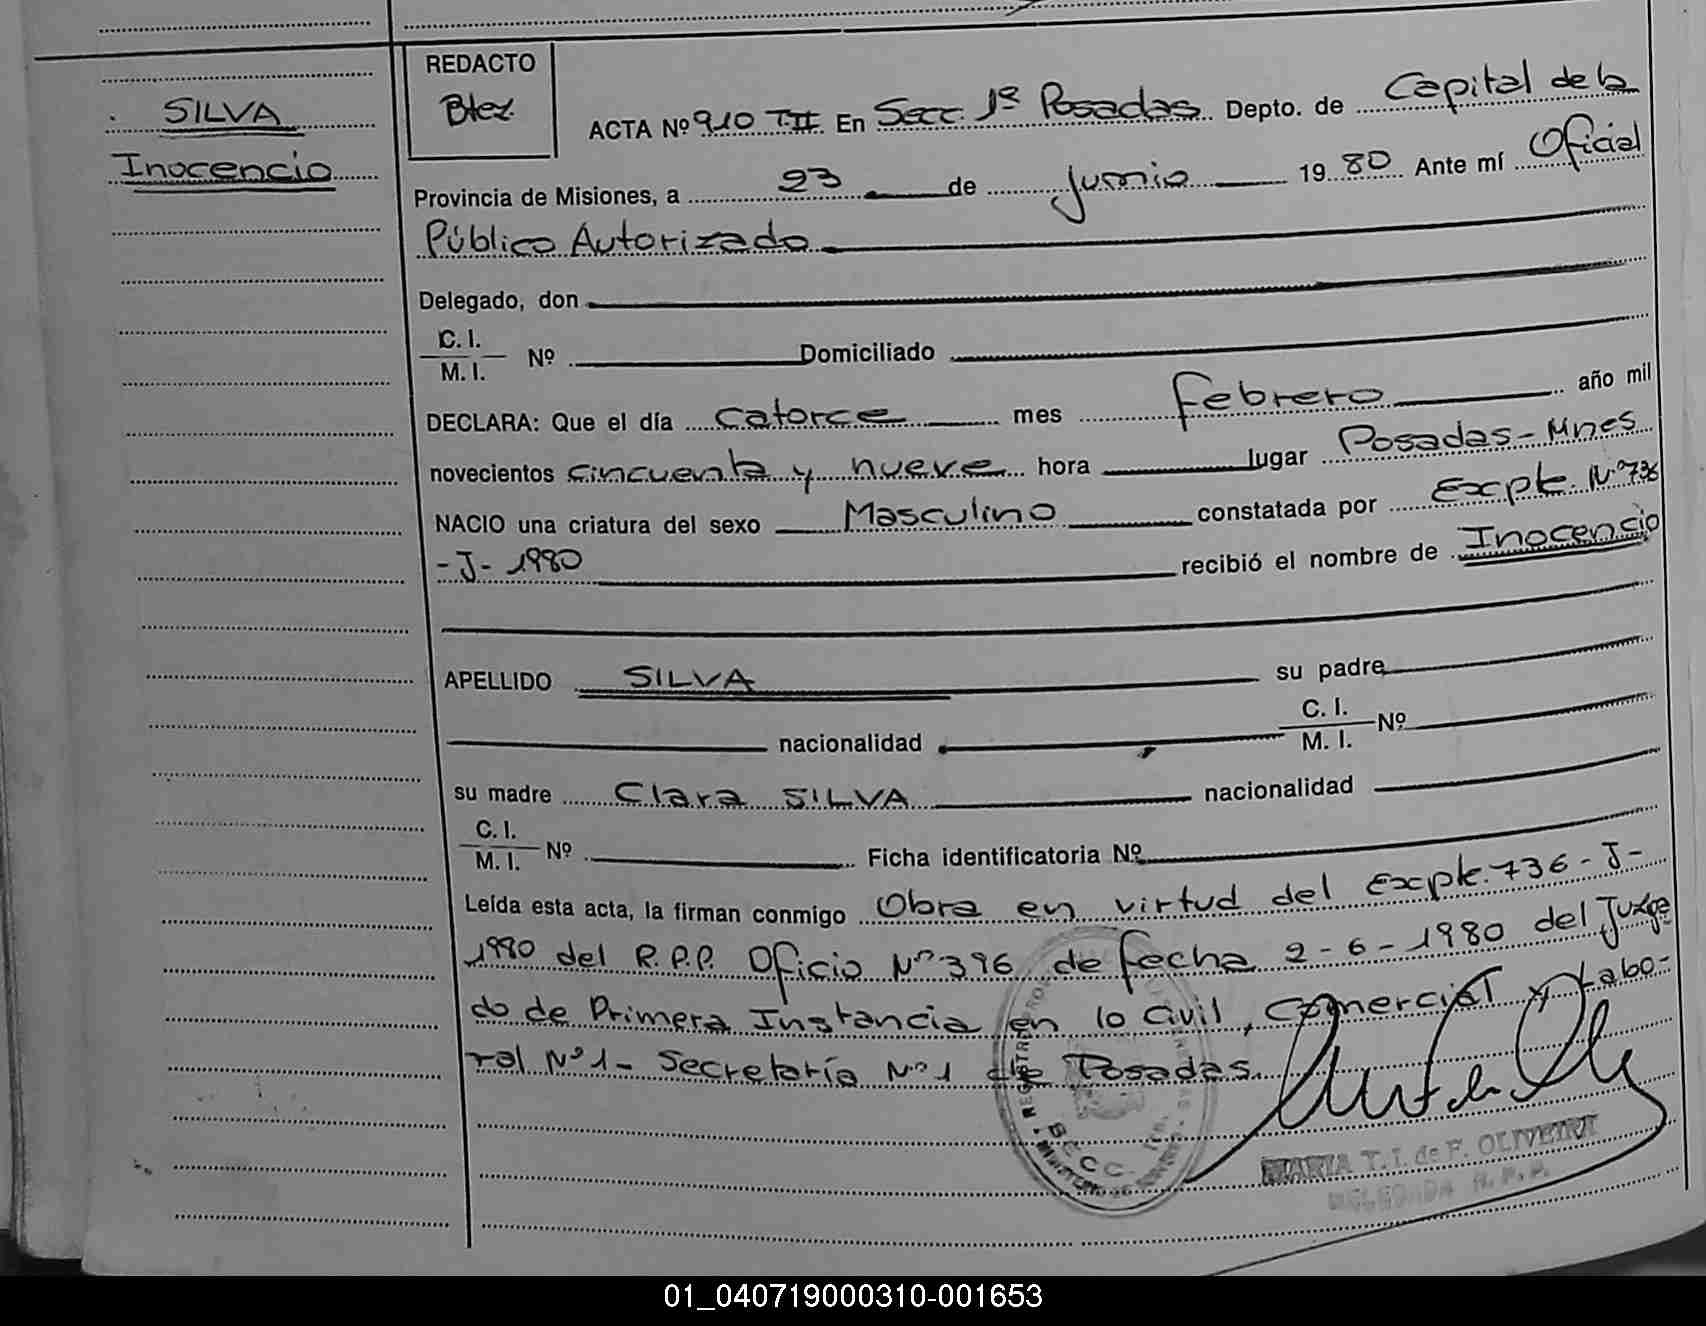 SILVA
Inocencio
REDACTO
Btez.
ACTA Nº 910 TII En Secc. 1ª Posadas Depto. de Capital de la
Provincia de Misiones, a 23 de Junio 1980 Ante mí Oficial
Público Autorizado
Delegado, don
C. I.
M. I. Nº Domiciliado
DECLARA: Que el día catorce mes febrero año mil
novecientos cincuenta y nueve hora lugar Posadas-Mnes
NACIO una criatura del sexo Masculino constatada por Expte. Nº 736
-J- 1980 recibió el nombre de Inocencio
APELLIDO SILVA su padre
nacionalidad C. I.
M. I. Nº
su madre Clara SILVA nacionalidad
C. I.
M. I. Nº Ficha identificatoria Nº
Leída esta acta, la firman conmigo Obra en virtud del Expte. 736-J-
1980 del R.P.P. Oficio Nº 396 de fecha 2-6-1980 del Juzga
do de Primera Instancia en lo Civil, Comercial y Labo-
ral Nº1- Secretaría Nº1 de Posadas.
SECC. 1ra.
MARIA T. I. de F. OLIVEIRA
DELEGADA R. P. P.
01_040719000310-001653